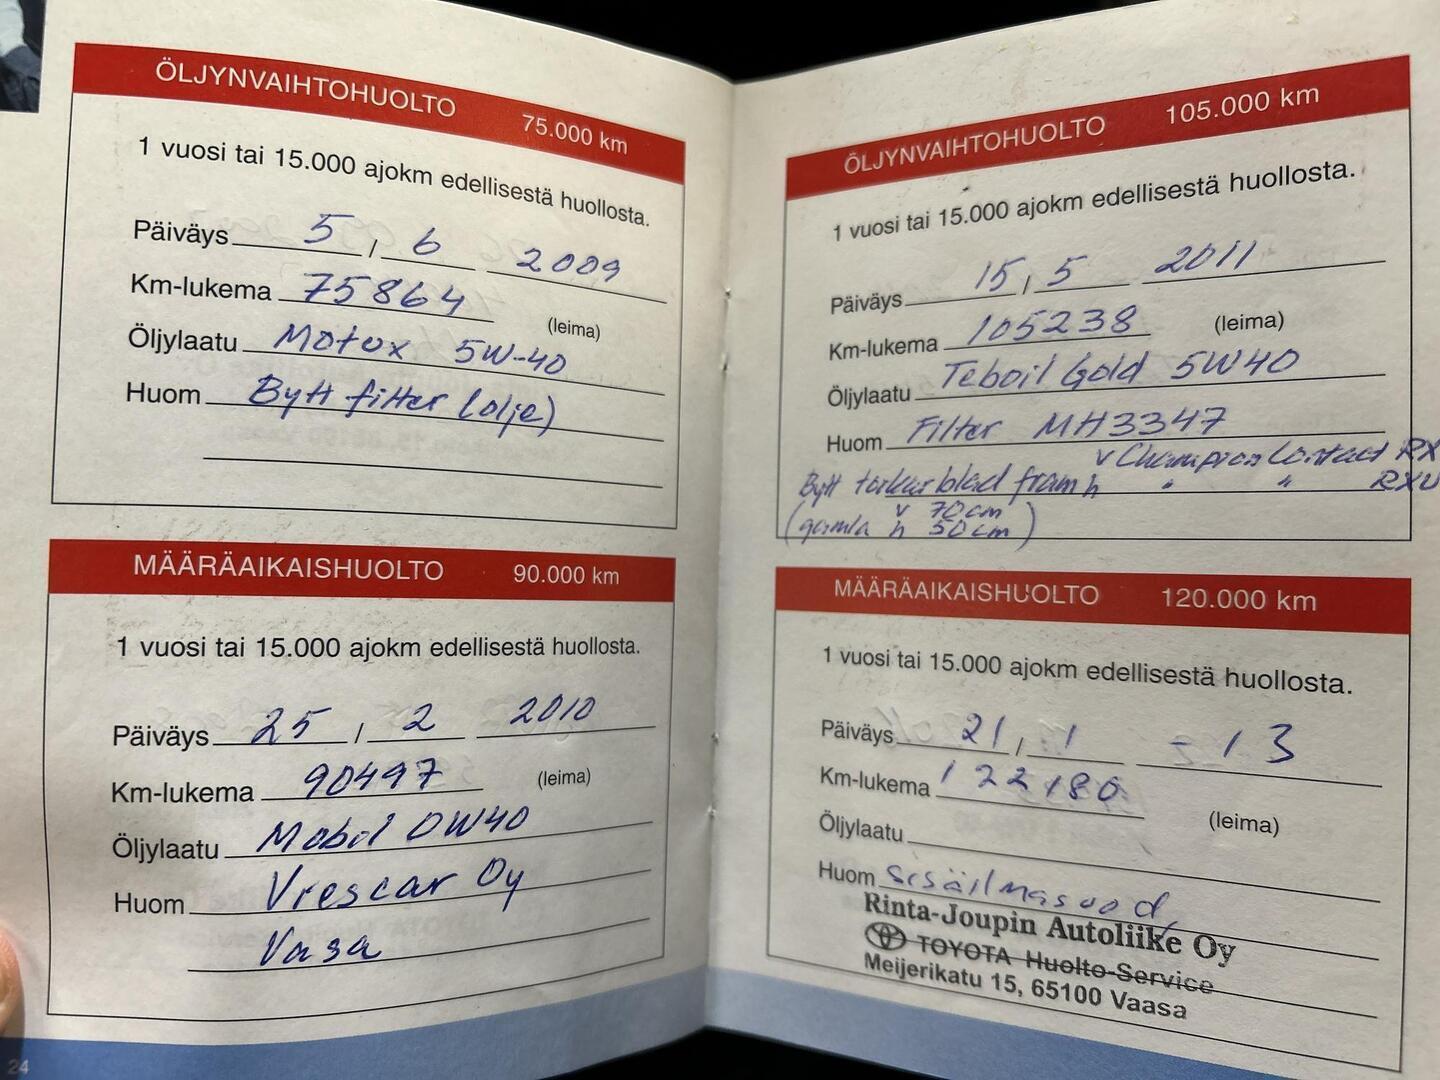 ÖLJYNVAIHTOHUOLTO 75.000 km
1 vuosi tai 15.000 ajokm edellisestä huollosta.
Päiväys 5 / 6 2009
Km-lukema 75864
(leima)
Öljylaatu Motox 5W-40
Huom Bytt filter (olje)
MÄÄRÄAIKAISHUOLTO 90.000 km
1 vuosi tai 15.000 ajokm edellisestä huollosta.
Päiväys 25 / 2 2010
Km-lukema 90497
(leima)
Öljylaatu Mobol 0W40
Huom Vrescar Oy
Vasa
24
ÖLJYNVAIHTOHUOLTO 105.000 km
1 vuosi tai 15.000 ajokm edellisestä huollosta.
Päiväys 15 / 5 2011
Km-lukema 105238
(leima)
Öljylaatu Teboil Gold 5W40
Huom Filter MH3347
v Champion Contact RX
Bytt torkarblad fram h " " RXU
v 70cm
(gamla h 50cm)
MÄÄRÄAIKAISHUOLTO 120.000 km
1 vuosi tai 15.000 ajokm edellisestä huollosta.
Päiväys 21 / 1 -13
Km-lukema 122180
(leima)
Öljylaatu
Huom sisäilmasuod,
Rinta-Joupin Autoliike Oy
TOYOTA Huolto-Service
Meijerikatu 15, 65100 Vaasa